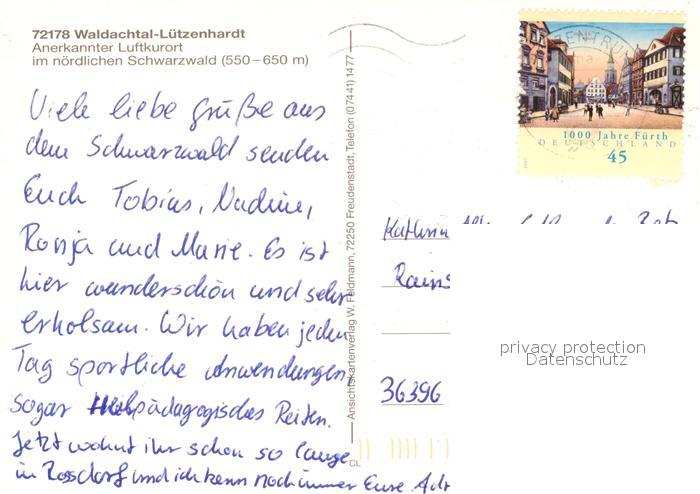 72178 Waldachtal-Lützenhardt
Anerkannter Luftkurort
im nördlichen Schwarzwald (550–650 m)
Viele liebe Grüße aus
dem Schwarzwald senden
Euch Tobias, Nadine,
Ronja und Marie. Es ist
hier wunderschön und sehr
erholsam. Wir haben jeden
Tag sportliche Anwendungen,
sogar pädagogisches Reiten.
Jetzt wohnt ihr schon so lange
in Rossdorf und ich kann noch immer Eure Adr
Ansichtskartenverlag W. Feldmann, 72250 Freudenstadt, Telefon (07441) 1477
CL
ZENTRUM
1000 Jahre Fürth
DEUTSCHLAND
45
Kathrin
Rains
36396
privacy protection
Datenschutz